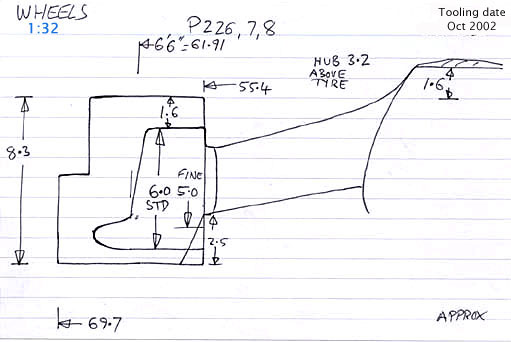 WHEELS
1:32
P226,7,8
Tooling date
Oct 2002
6'6"=61.91
55.4
HUB 3.2
ABOVE
TYRE
1.6
1.6
8.3
FINE
6.0 5.0
STD
2.5
69.7
APPROX